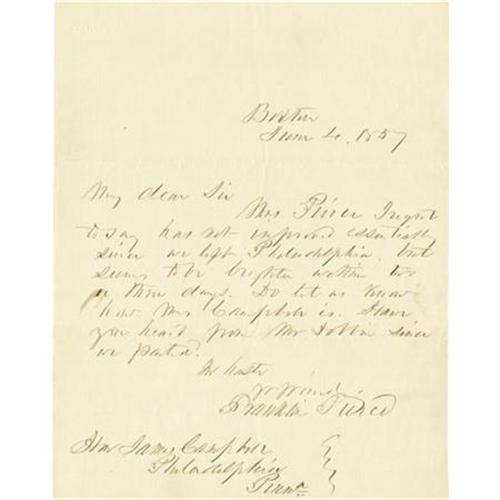 Boston
June 4, 1857
My dear Sir
Mrs Pierce I regret
to say has not improved essentially
since we left Philadelphia, but
seems to be brighter within two
or three days. Do let us know
how Mrs Campbell is. Have
you heard from Mr Dobbin since
we parted.
In haste
yr friend
Franklin Pierce
Hon James Campbell
Philadelphia
Penna